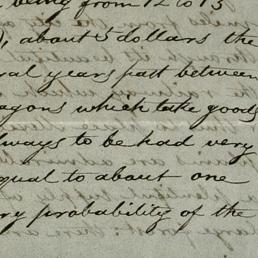 being from 12 to 15
), about 5 dollars the
ral years past between
agons which take goods
lways to be had very
qual to about one
ry probability of the